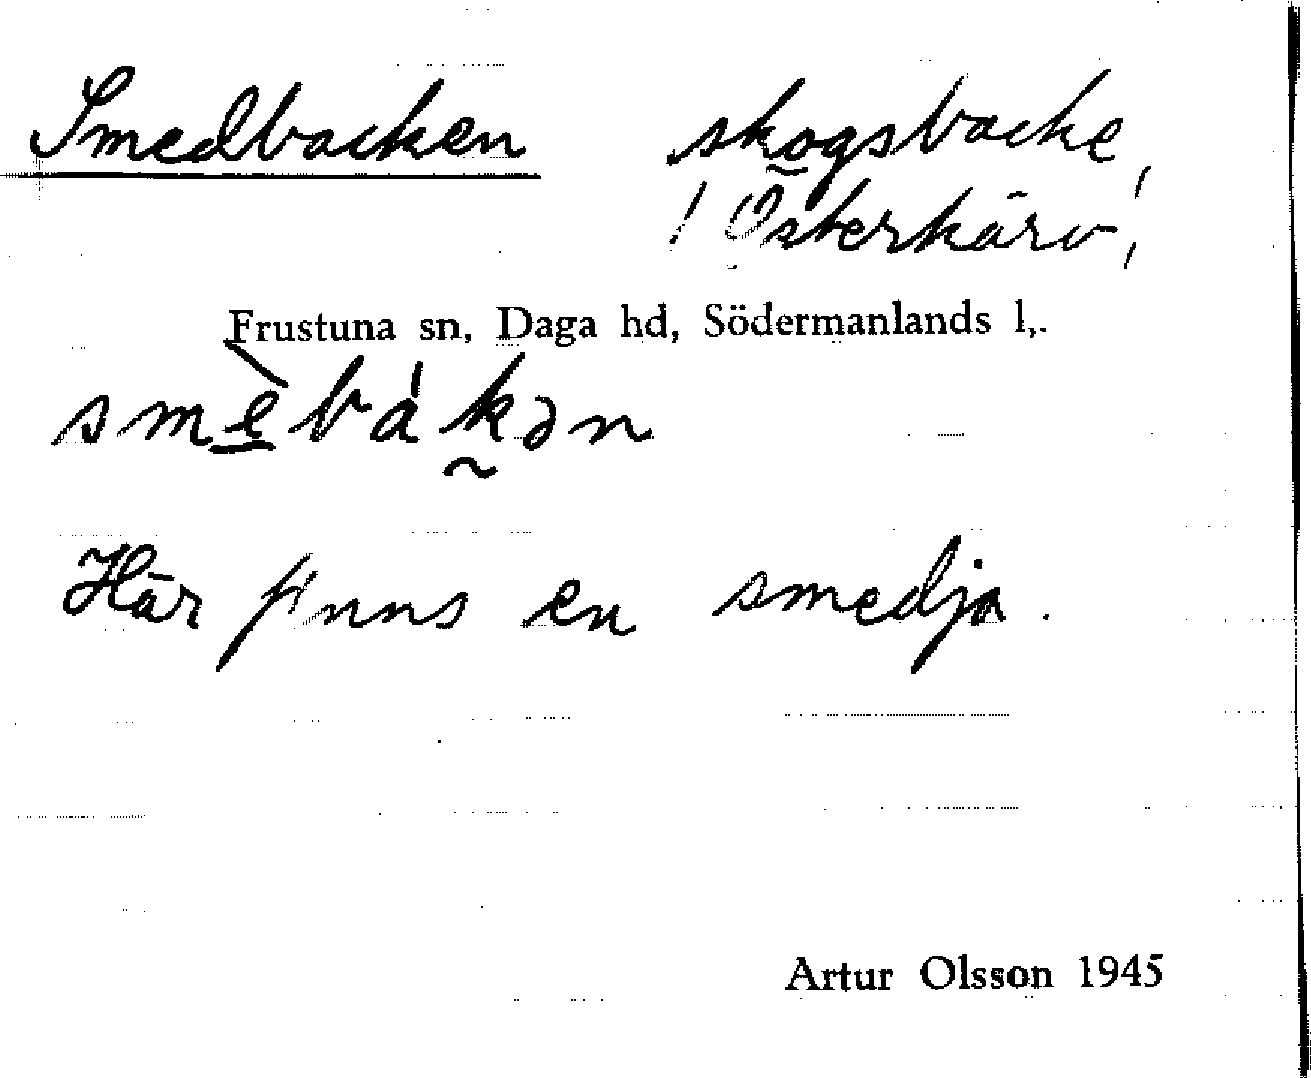 Smedbacken skogsbacke,
! Österkärv!,
Frustuna sn, Daga hd, Södermanlands l,.
smèbákən
Här finns en smedja.
Artur Olsson 1945